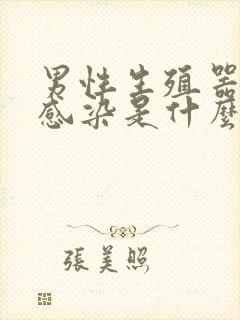 男性生殖器
感染是什麼
張美照